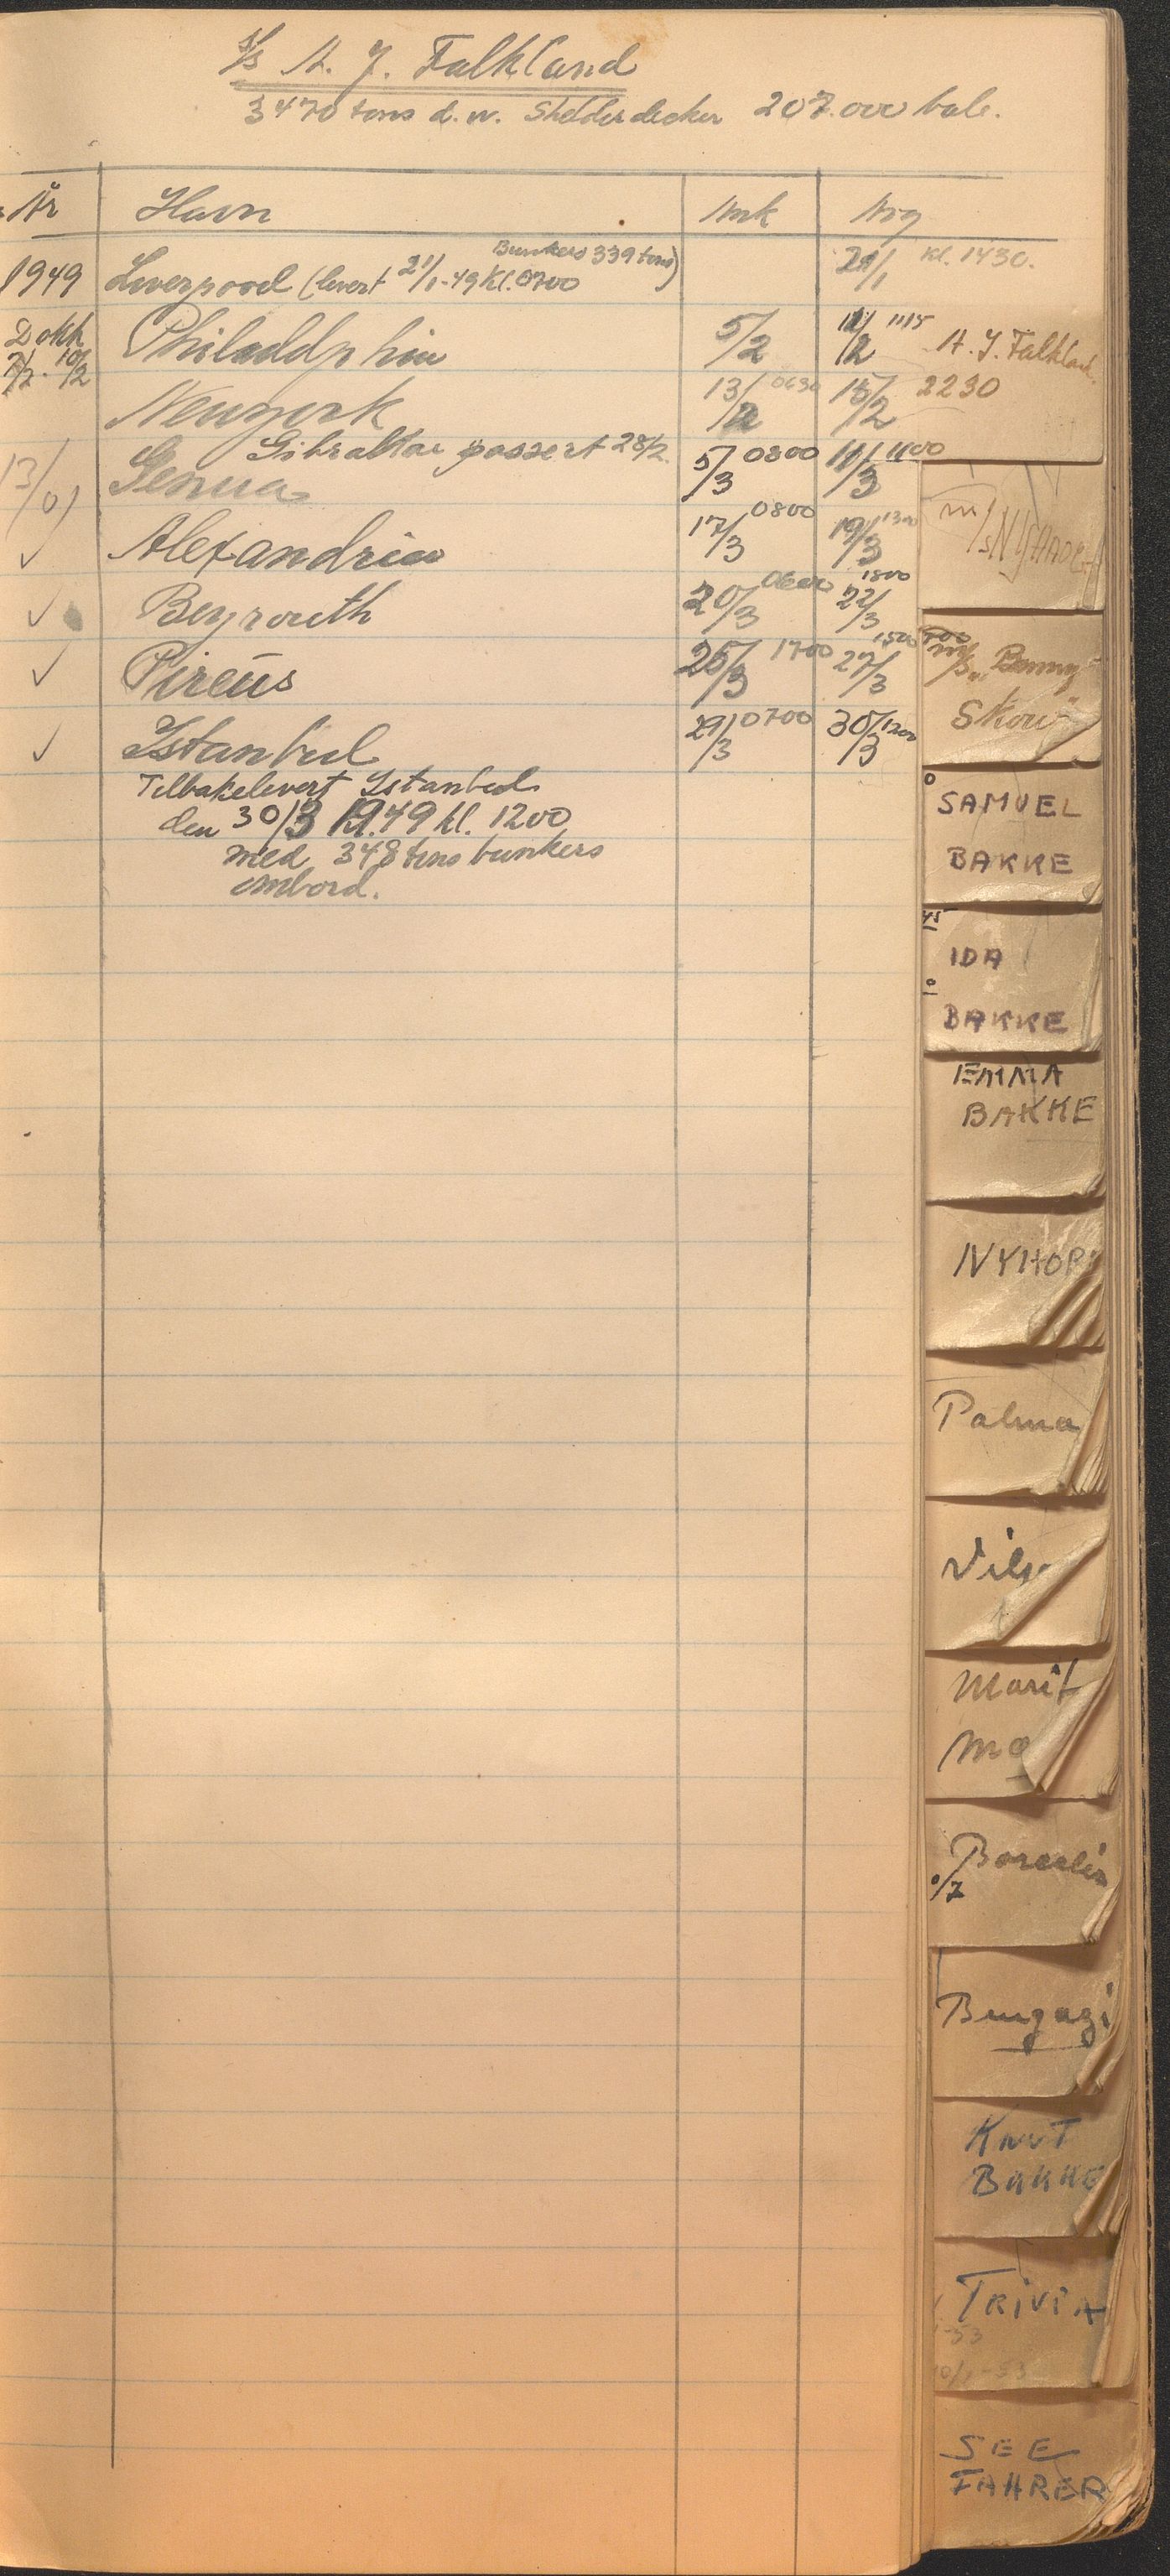 s/s A. J. Falkland
3470 tons d.w. Shelterdecker 207.000 bale.
År Havn Ank Avg
Bunkers 339 tons)
1949 Liverpool (levert 21/1-49 Kl. 0700 21/1 Kl. 1430.
Dokk Philadelphia 5/2 11/2 1115
7/2. 10/2
Newyork 13/2 0630 15/2 2230
Gibraltar passert 28/2.
Genua 5/3 0800 11/3 1100
Alexandria 17/3 0800 19/3 1300
Beyrouth 20/3 0600 22/3 1800
Pireus 25/3 1700 27/3 1500
Istanbul 29/3 0700 30/3 1200
Tilbakelevert Istanbul
den 30/3 1949 kl. 1200
med 348 tons bunkers
ombord.
A. J. Falkland.
m/s
m/s "Benny
Skou"
SAMUEL
BAKKE
IDA
BAKKE
EMMA
BAKKE
NYHOR
Palma
Vil
Marit
Mæ
Bengazi
KNUT
BAKKE
TRIVIA
-53
10/1-53
SEE
FAHRER